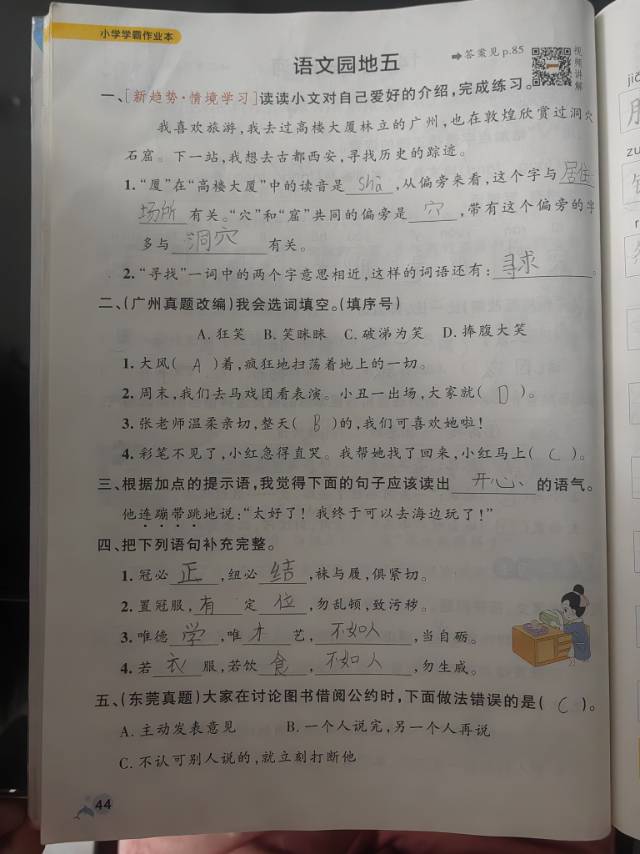 小学学霸作业本
语文园地五
➡答案见 p.85
视频讲解
一、[新趋势·情境学习]读读小文对自己爱好的介绍,完成练习。
我喜欢旅游,我去过高楼大厦林立的广州,也在敦煌欣赏过洞穴
石窟。下一站,我想去古都西安,寻找历史的踪迹。
1.“厦”在“高楼大厦”中的读音是 shà ,从偏旁来看,这个字与 居住
场所 有关。“穴”和“窟”共同的偏旁是 穴 ,带有这个偏旁的字
多与 洞穴 有关。
2.“寻找”一词中的两个字意思相近,这样的词语还有: 寻求 。
二、(广州真题改编)我会选词填空。(填序号)
A.狂笑 B.笑眯眯 C.破涕为笑 D.捧腹大笑
1.大风( A )着,疯狂地扫荡着地上的一切。
2.周末,我们去马戏团看表演。小丑一出场,大家就( D )。
3.张老师温柔亲切,整天( B )的,我们可喜欢她啦!
4.彩笔不见了,小红急得直哭。我帮她找了回来,小红马上( C )。
三、根据加点的提示语,我觉得下面的句子应该读出 开心、 的语气。
他连蹦带跳地说:“太好了!我终于可以去海边玩了!”
四、把下列语句补充完整。
1.冠必 正 ,纽必 结 ,袜与履,俱紧切。
2.置冠服, 有 定 位 ,勿乱顿,致污秽。
3.唯德 学 ,唯 才 艺, 不如人 ,当自砺。
4.若 衣 服,若饮 食 , 不如人 ,勿生戚。
五、(东莞真题)大家在讨论图书借阅公约时,下面做法错误的是( C )。
A.主动发表意见 B.一个人说完,另一个人再说
C.不认可别人说的,就立刻打断他
44